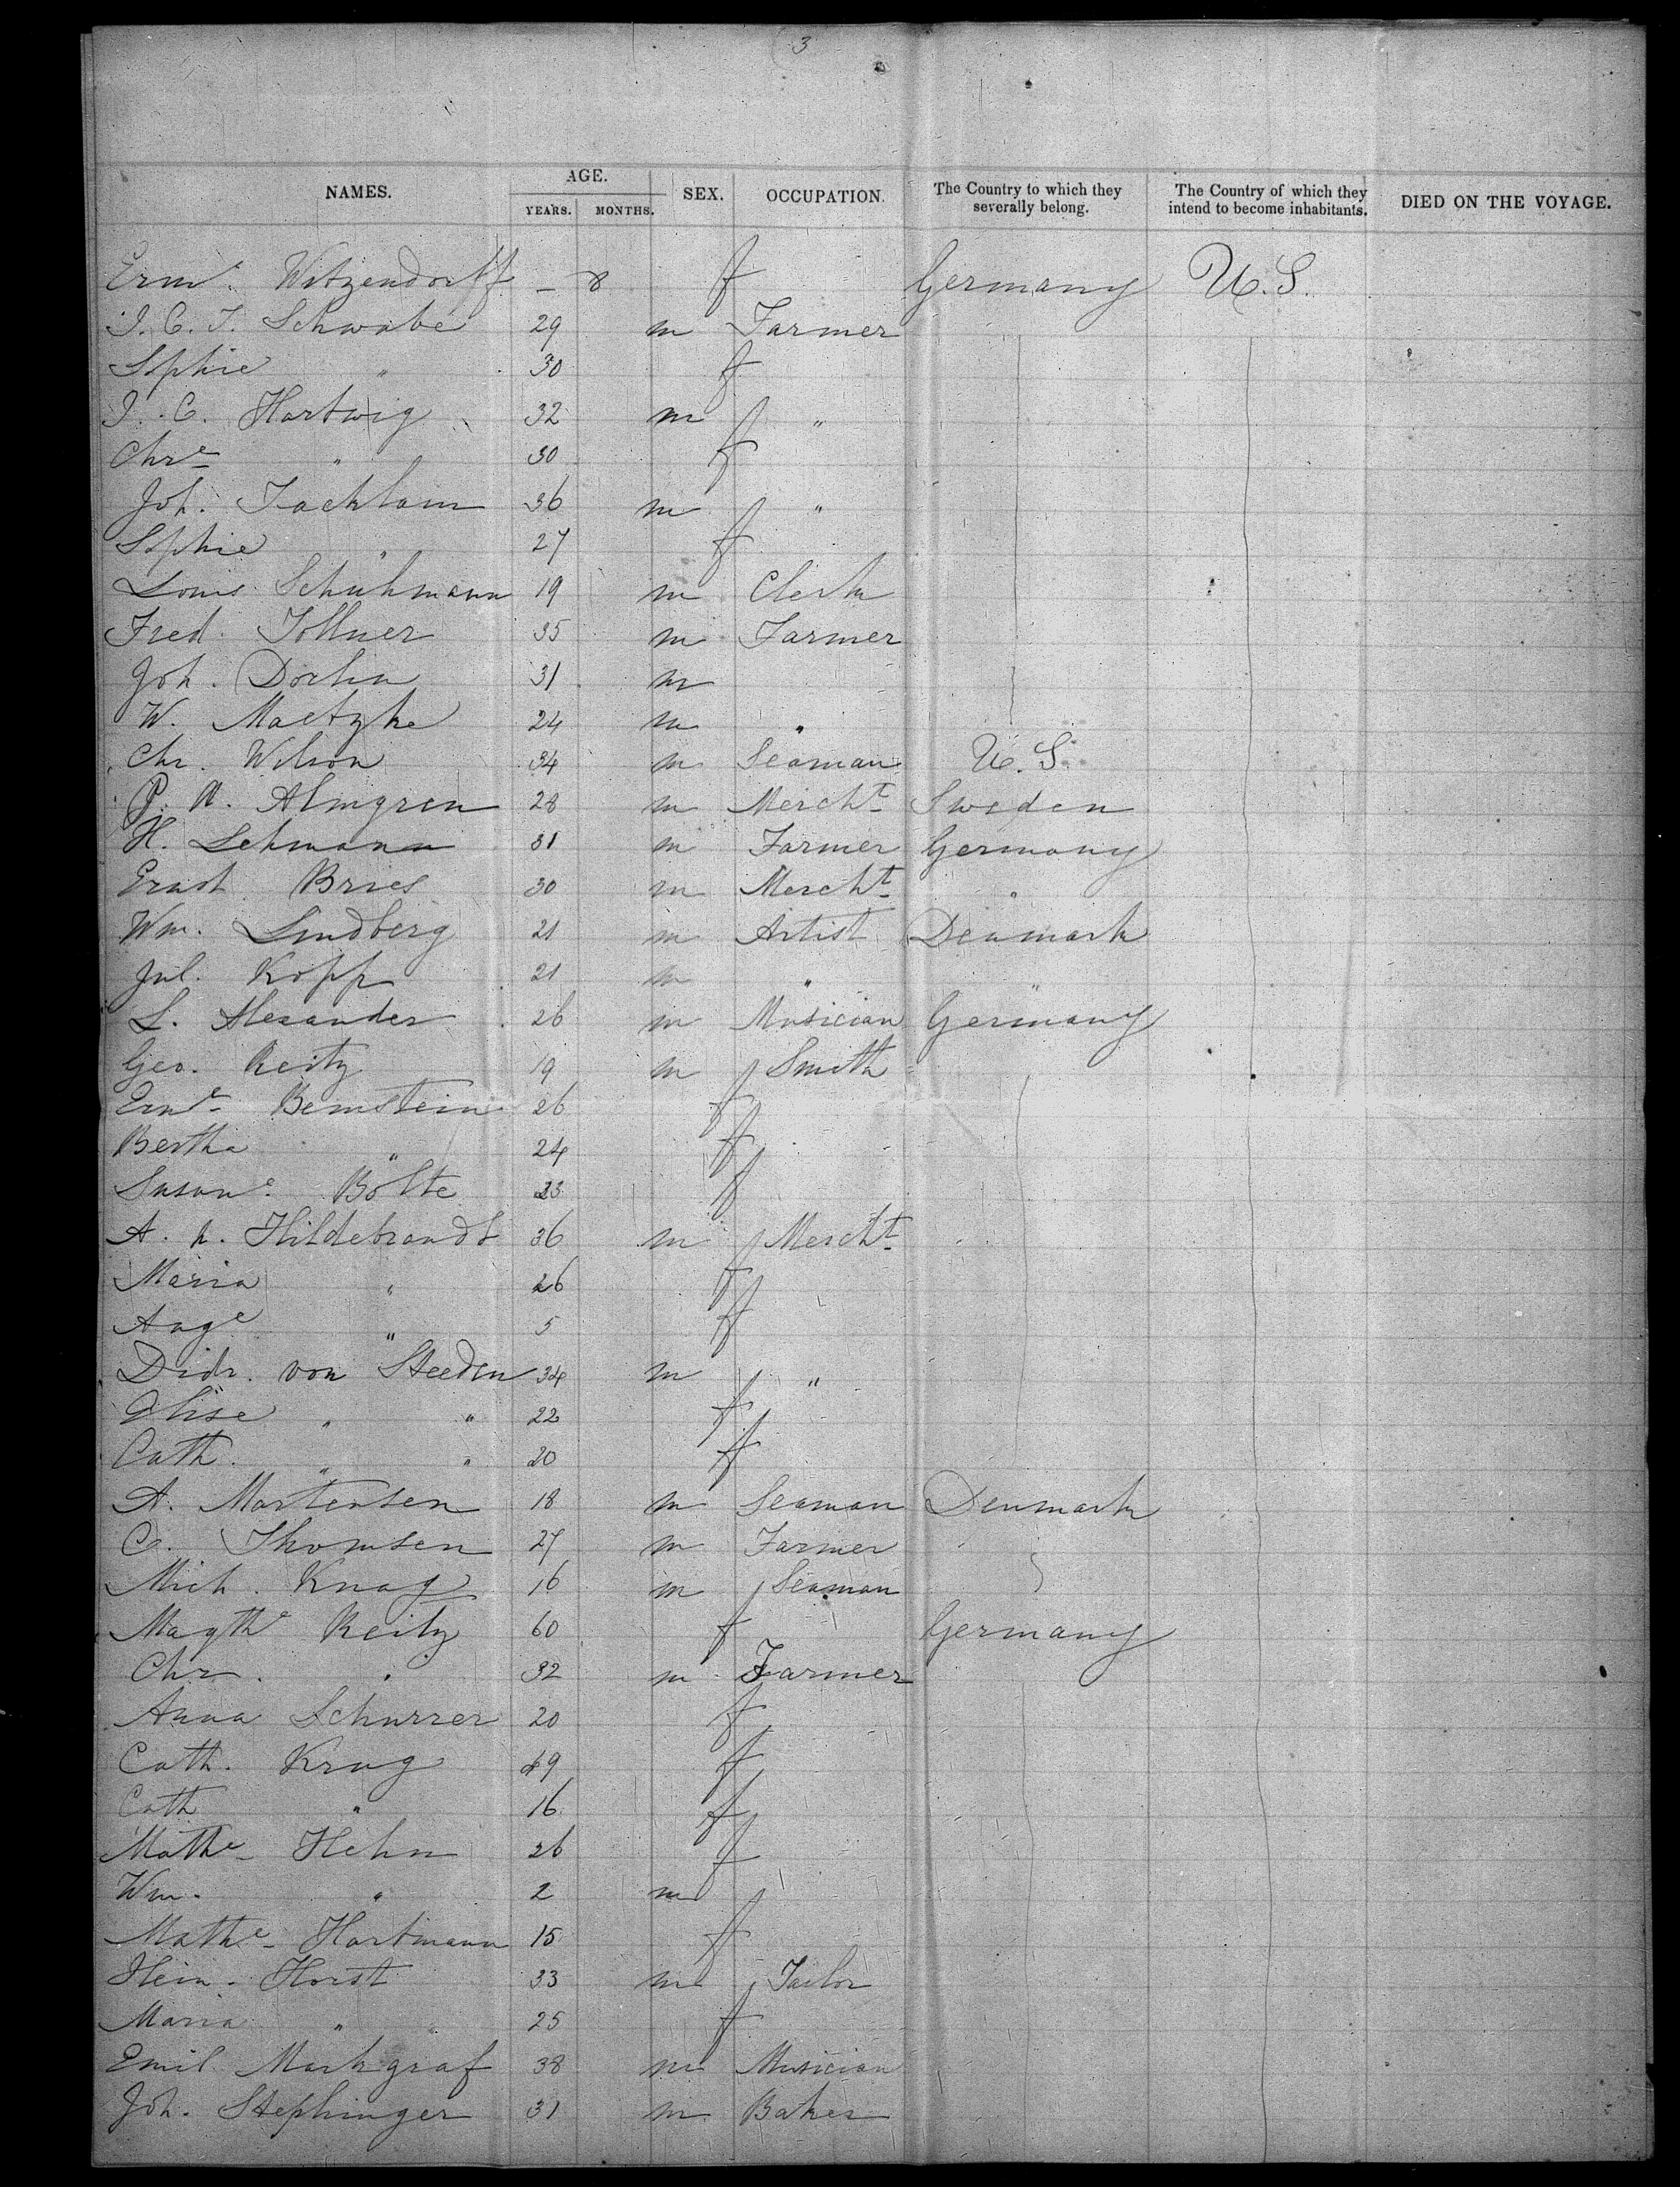 3
NAMES. AGE. YEARS. MONTHS. SEX. OCCUPATION. The Country to which they severally belong. The Country of which they intend to become inhabitants. DIED ON THE VOYAGE.
Erne. Witzendorff - 8 f Germany U.S.
J. C. T. Schwabe 29 m Farmer
Sophie " 30 f
J. C. Hartwig 32 m "
Chre " 30 f
Joh. 36 m "
Sophie " 27 f
Louis Schuhmann 19 m Clerk
Fred. Tollner 35 m Farmer
Joh. 31 m
W. Maetzke 24 m "
Chr. Wilson 34 m Seaman U.S.
P. A. Almgren 28 m Mercht Sweden
H. Lehmann 31 m Farmer Germany
Ernst Bries 30 m Mercht "
Wm. Lindberg 21 m Artist Denmark
Jul. Kopp 21 m " "
L. Alexander 26 m Musician Germany
Geo. Reitz 19 m Smith
Erne Bernstein 26 f
Bertha " 24 f
Susane. Bolte 23 f
A. h. Hildebrandt 36 m Mercht
Maria " 26 f
Auge " 5 f
Didr. von Steeden 34 m "
Elise " " 22 f
Cath. " " 20 f
A. Mortensen 18 m Seaman Denmark
C. Thomsen 27 m Farmer
Mich. Knag 16 m Seaman
Magthe Reitz 60 f Germany
Chr. " 32 m Farmer
Anna Schurrer 20 f
Cath. Krug 49 f
Cath " 16 f
Mathe Hehn 26 f
Wm. " 2 m
Mathe Hartmann 15 f
Hein. Horst 33 m Tailor
Maria " 25 f
Emil Markgraf 38 m Musician
Joh. Stephinger 31 m Baker